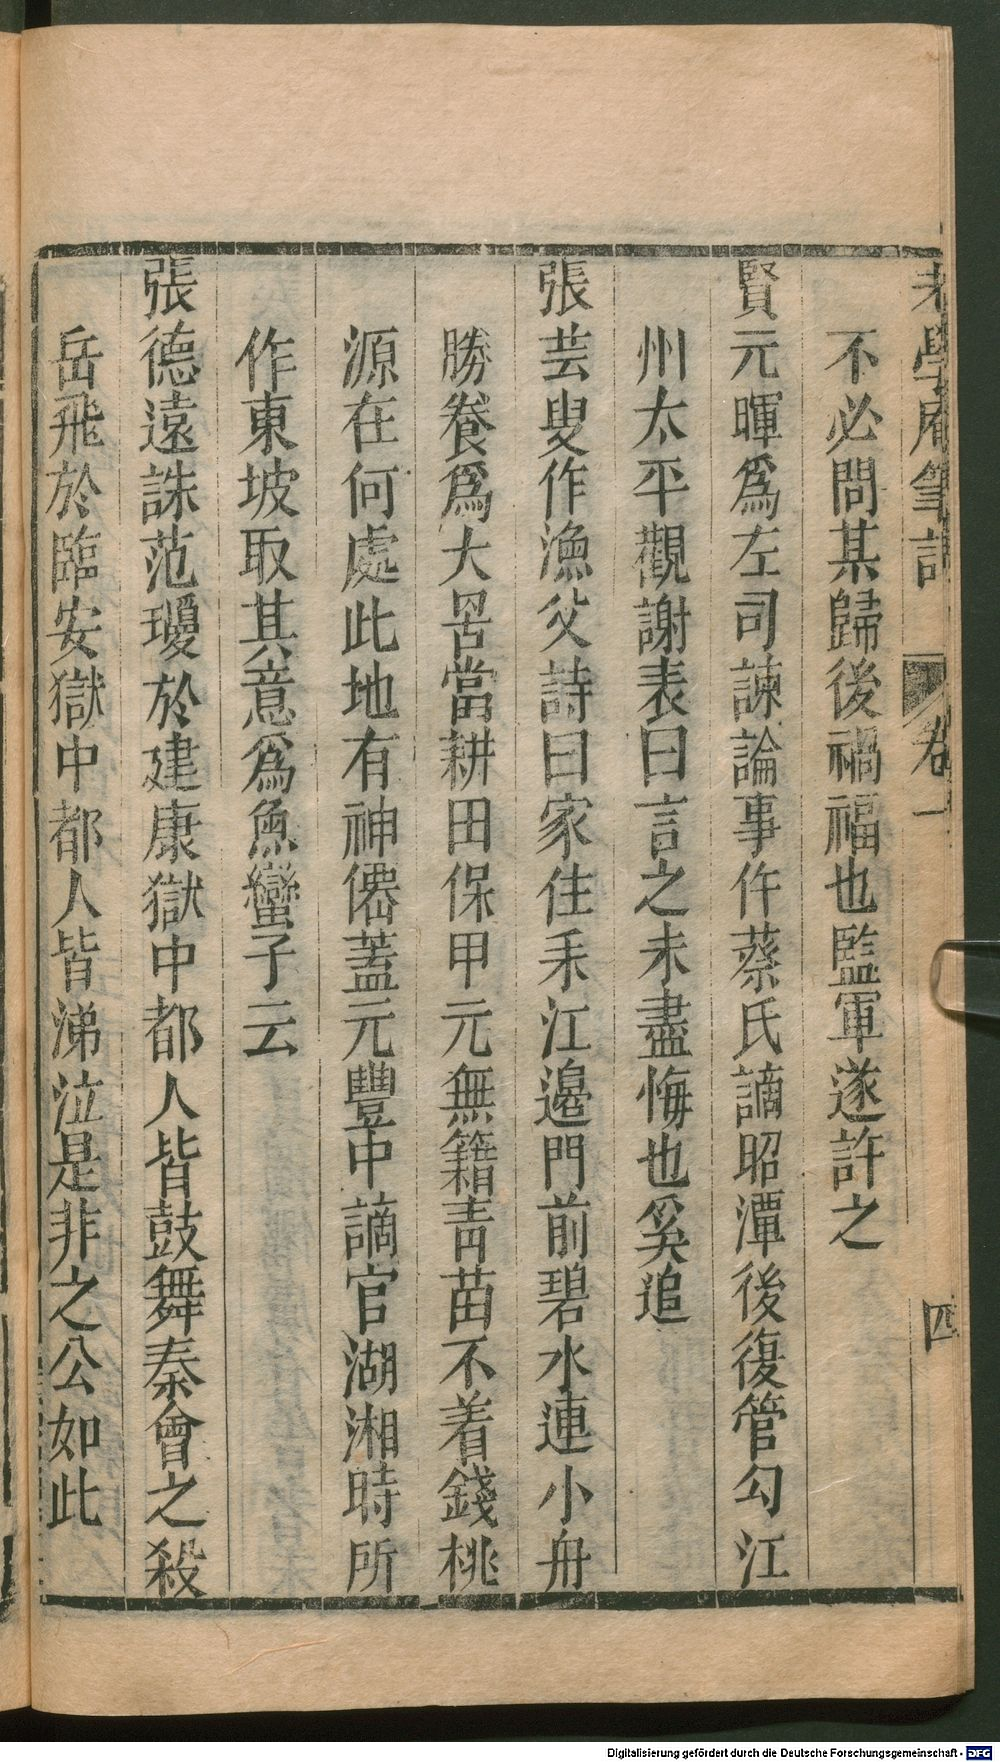 老學庵筆記 卷一 四
不必問某歸後禍福也監軍遂許之
賢元暉爲左司諫論事仵蔡氏謫昭潭後復管勾江
州太平觀謝表曰言之未盡悔也奚追
張芸叟作漁父詩曰家住耒江邊門前碧水連小舟
勝養爲大罟當耕田保甲元無籍靑苗不着錢桃
源在何處此地有神僊蓋元豐中謫官湖湘時所
作東坡取其意爲魚蠻子云
張德遠誅范瓊於建康獄中都人皆鼓舞秦會之殺
岳飛於臨安獄中都人皆涕泣是非之公如此
Digitalisierung gefördert durch die Deutsche Forschungsgemeinschaft - DFG